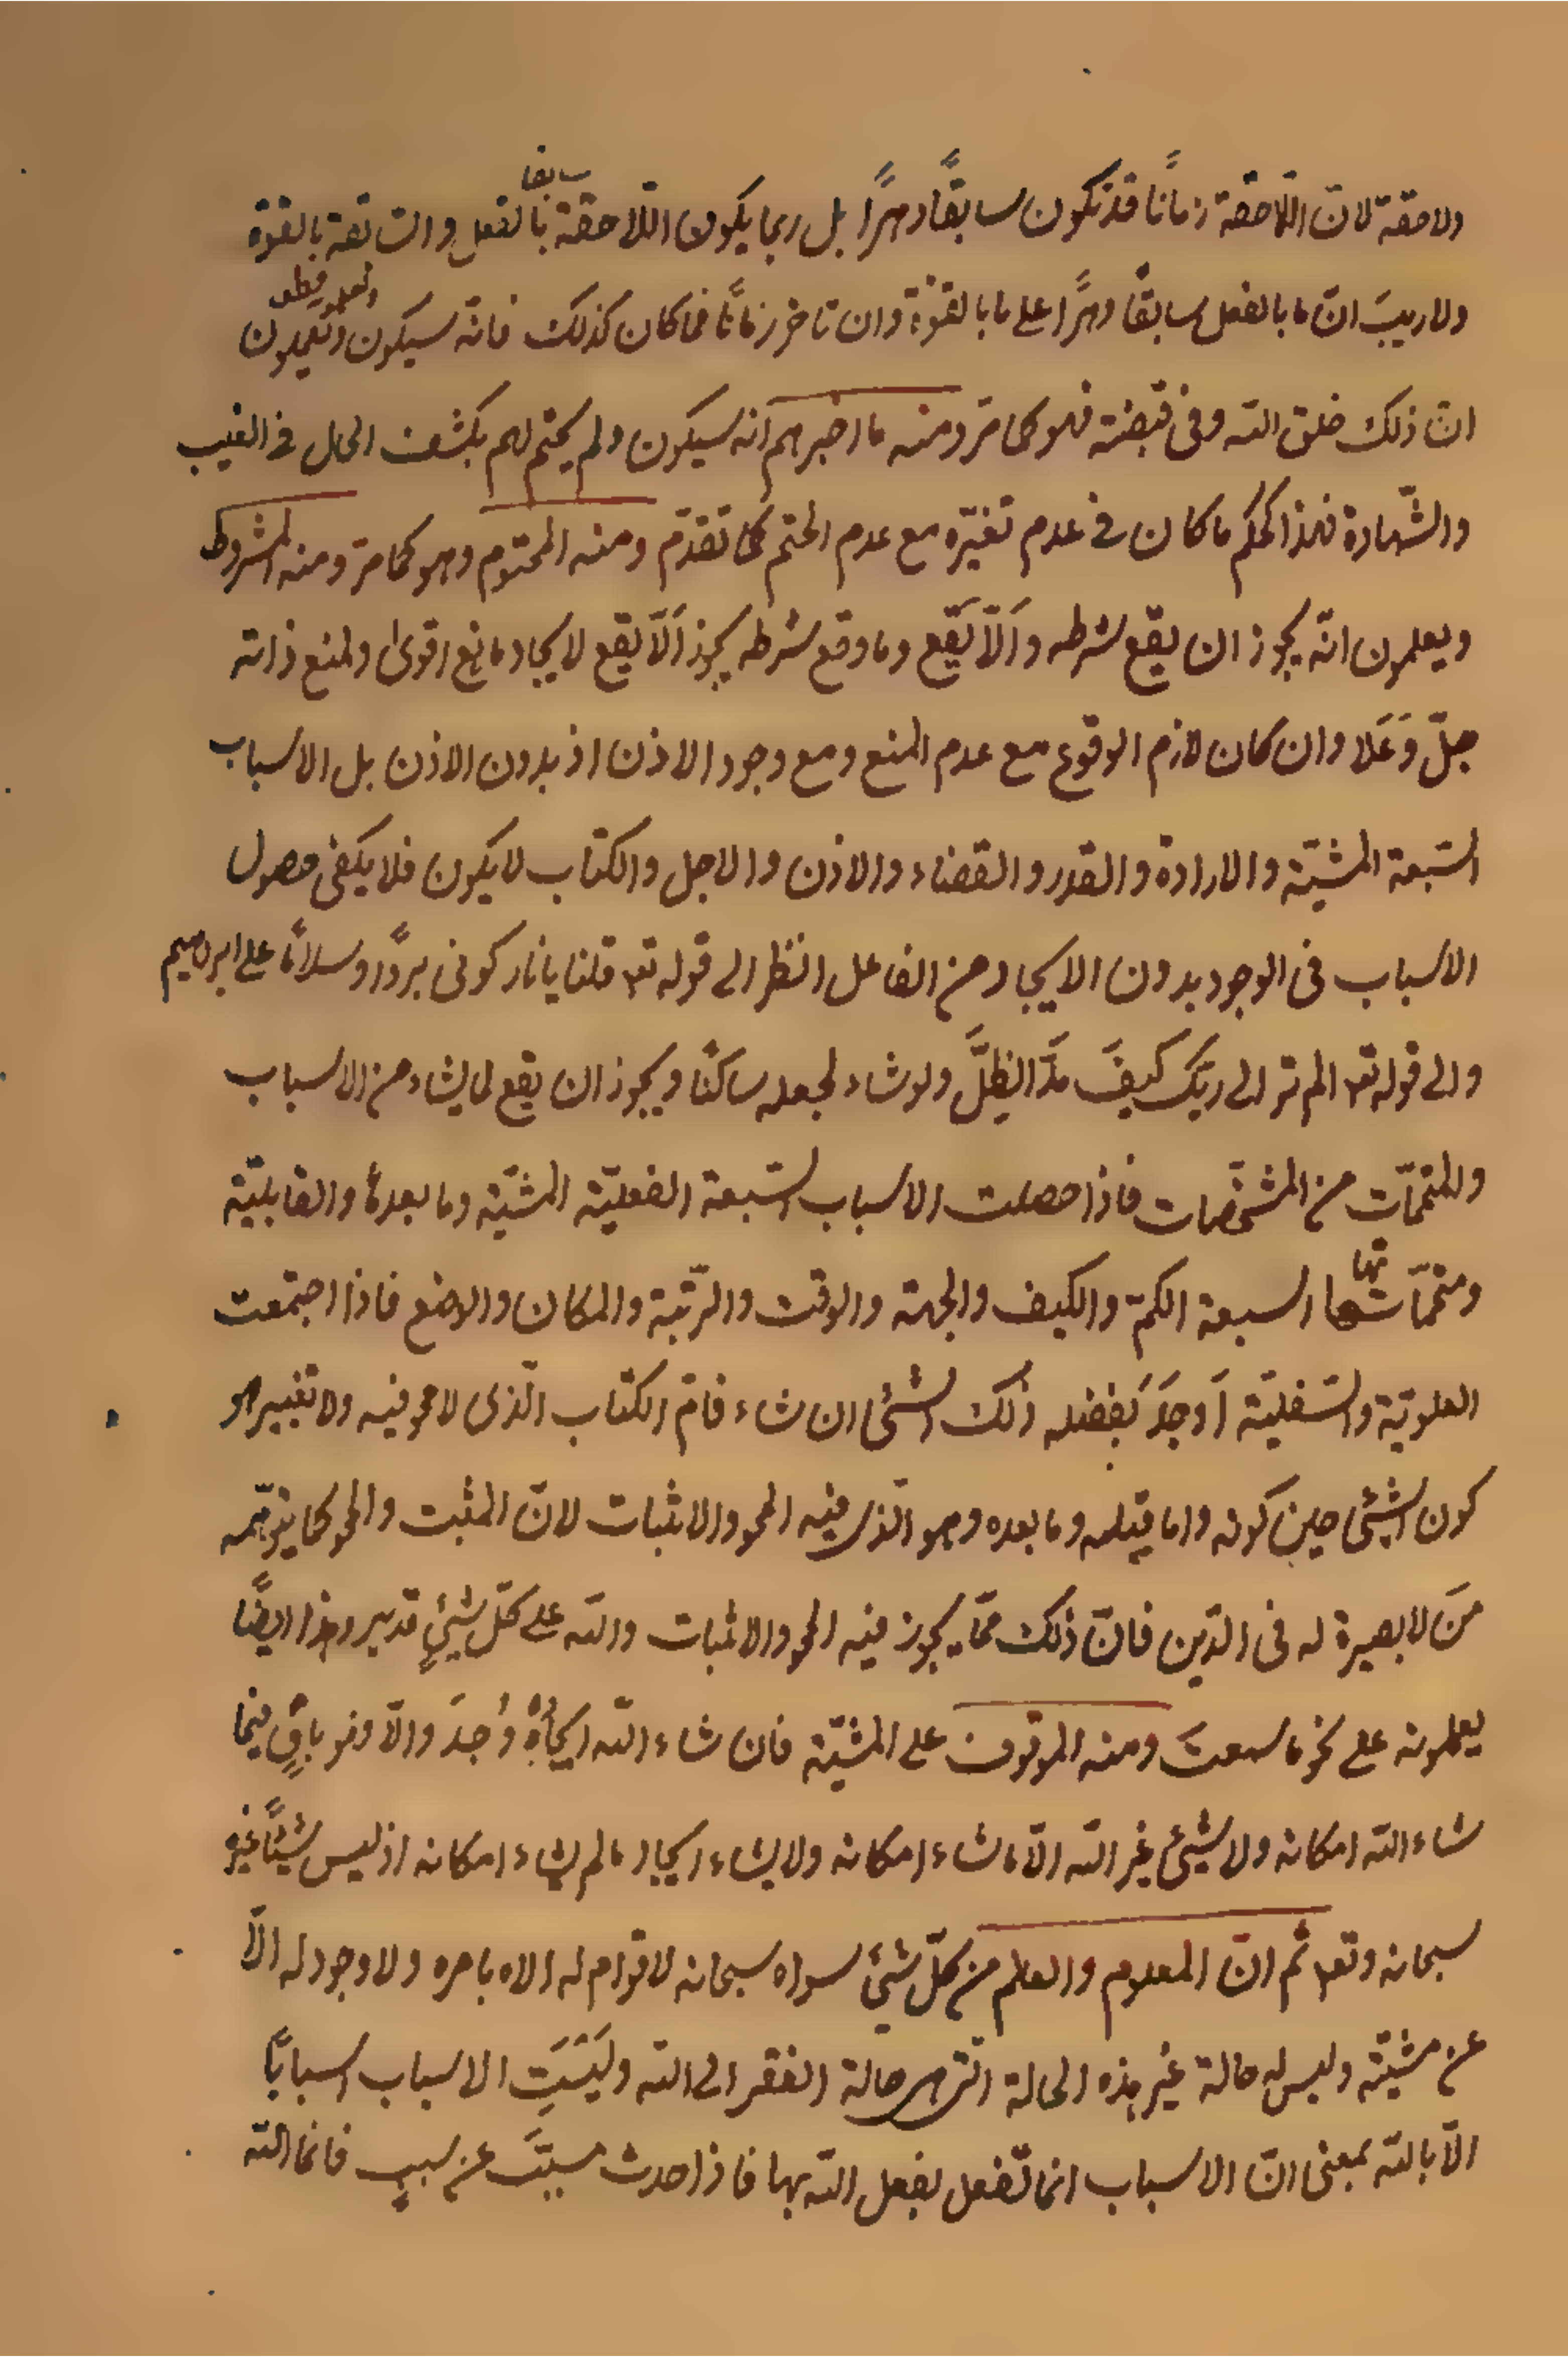 ولاحقة لانّ اللّاحقة زماناً قد تكون سابقاً دهراً بل ربما يكون اللّاحقة سابقا بالفعل والسّابقة بالقوّة
ولا ريبَ انّ ما بالفعل سابقاً دهراً على ما بالقوّة وان تاخر زماناً فما كان كذلك فانّه سيكون ويعلمون
انّ ذلك خلق الله وفى قبضته فهو كما مرّ ومنه ما اخبرهم انه سيكون ولم يحتم لهم بكشف الحال فى الغيب
والشّهادة فهذا كحكم ما كان فى عدم تغيّره مع عدم الحتم كما تقدّم ومنه المحتوم وهو كما مرّ ومنه المشروط
ويعلمون انّه يجوز ان يقع شرطه واَلّا يَقَع وما وقع شرطه يجوز اَلّا يقع لايجاد مانع اقوىٰ ولمنع ذاته
جلّ وَعَلَا وان كان لازم الوقوع مع عدم المنع ومع وجود الاذن اذ بدون الاذن بل الاسباب
السّبعة المشيّة والارادة والقدر والقضاء والاذن والاجل والكتاب لا يكون فلا يكفى حصول
الاسباب فى الوجود بدون الايجاد من الفاعل انظر الى قوله تع قلنا يا نار كونى برداً وسلاماً على ابرهيم
والى قوله تع الم تر الى ربّك كيفَ مدَّ الظلَّ ولو شاء لجعله ساكناً ويجوز ان يقع لما يشاء من الاسباب
وللمتمّمات من المشخّصات فاذا حصلت الاسباب السّبعة الفعليّة المشيّة وما بعدها والقابليّة
ومتمّماتها تها السبعة الكمّ والكيف والجهة والوقت والرّتبة والمكان والوضع فاذا اجتمعت
العلويّة والسّفليّة اَوجَدَ بفَضله ذلك الشئ ان شاء فامّ الكتاب الّذى لا محو فيه ولا تغيير هو
كون الشئ حين كونه واما قبله وما بعده وهو الّذى فيه المحو والاثبات لانّ المثبت والمحو كما يتوهّمه
مَن لا بصيرة له فى الدّين فانّ ذلك ممّا يجوز فيه المحو والاثبات والله على كلّ شئٍ قدير وهذا ايضاً
يعلمونه على نحو ما سمعتَ ومنه الموقوف على المشيّة فان شاء الله ايجادُهُ وُجِدَ والّا وهو باقٍ فيما
شاء الله امكانه ولا شئ غير الله الّا ما شاء امكانه ولا يشاء ايجاد ما لم يشاء امكانه اذ ليس شيئاً غيره
سبحانه وتع ثم انّ المعلوم والعلم من كلّ شئ سواه سبحانه لا قوام له الاه بامره ولا وجود له الّا
عن مشيّته وليس له حالة غير هذه الحالة الّتى هى حالة الفقر الى الله ولَيسَتِ الاسباب اسباباً
الّا بالله بمعنى انّ الاسباب انما تفعل بفعل الله بها فاذا حدث مسبّبَ عن سببٍ فانما الله